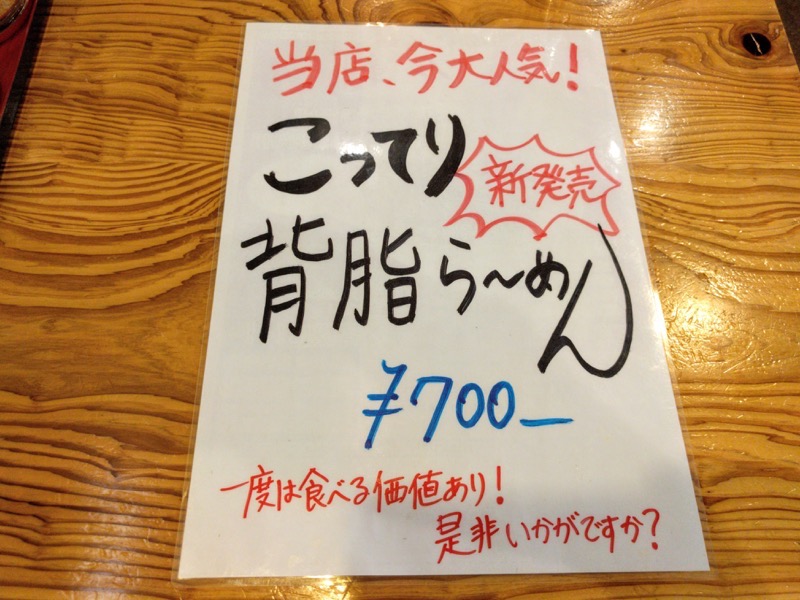 当店、今大人気!
こってり
新発売
背脂ら〜めん
¥700_
一度は食べる価値あり!
是非いかがですか?